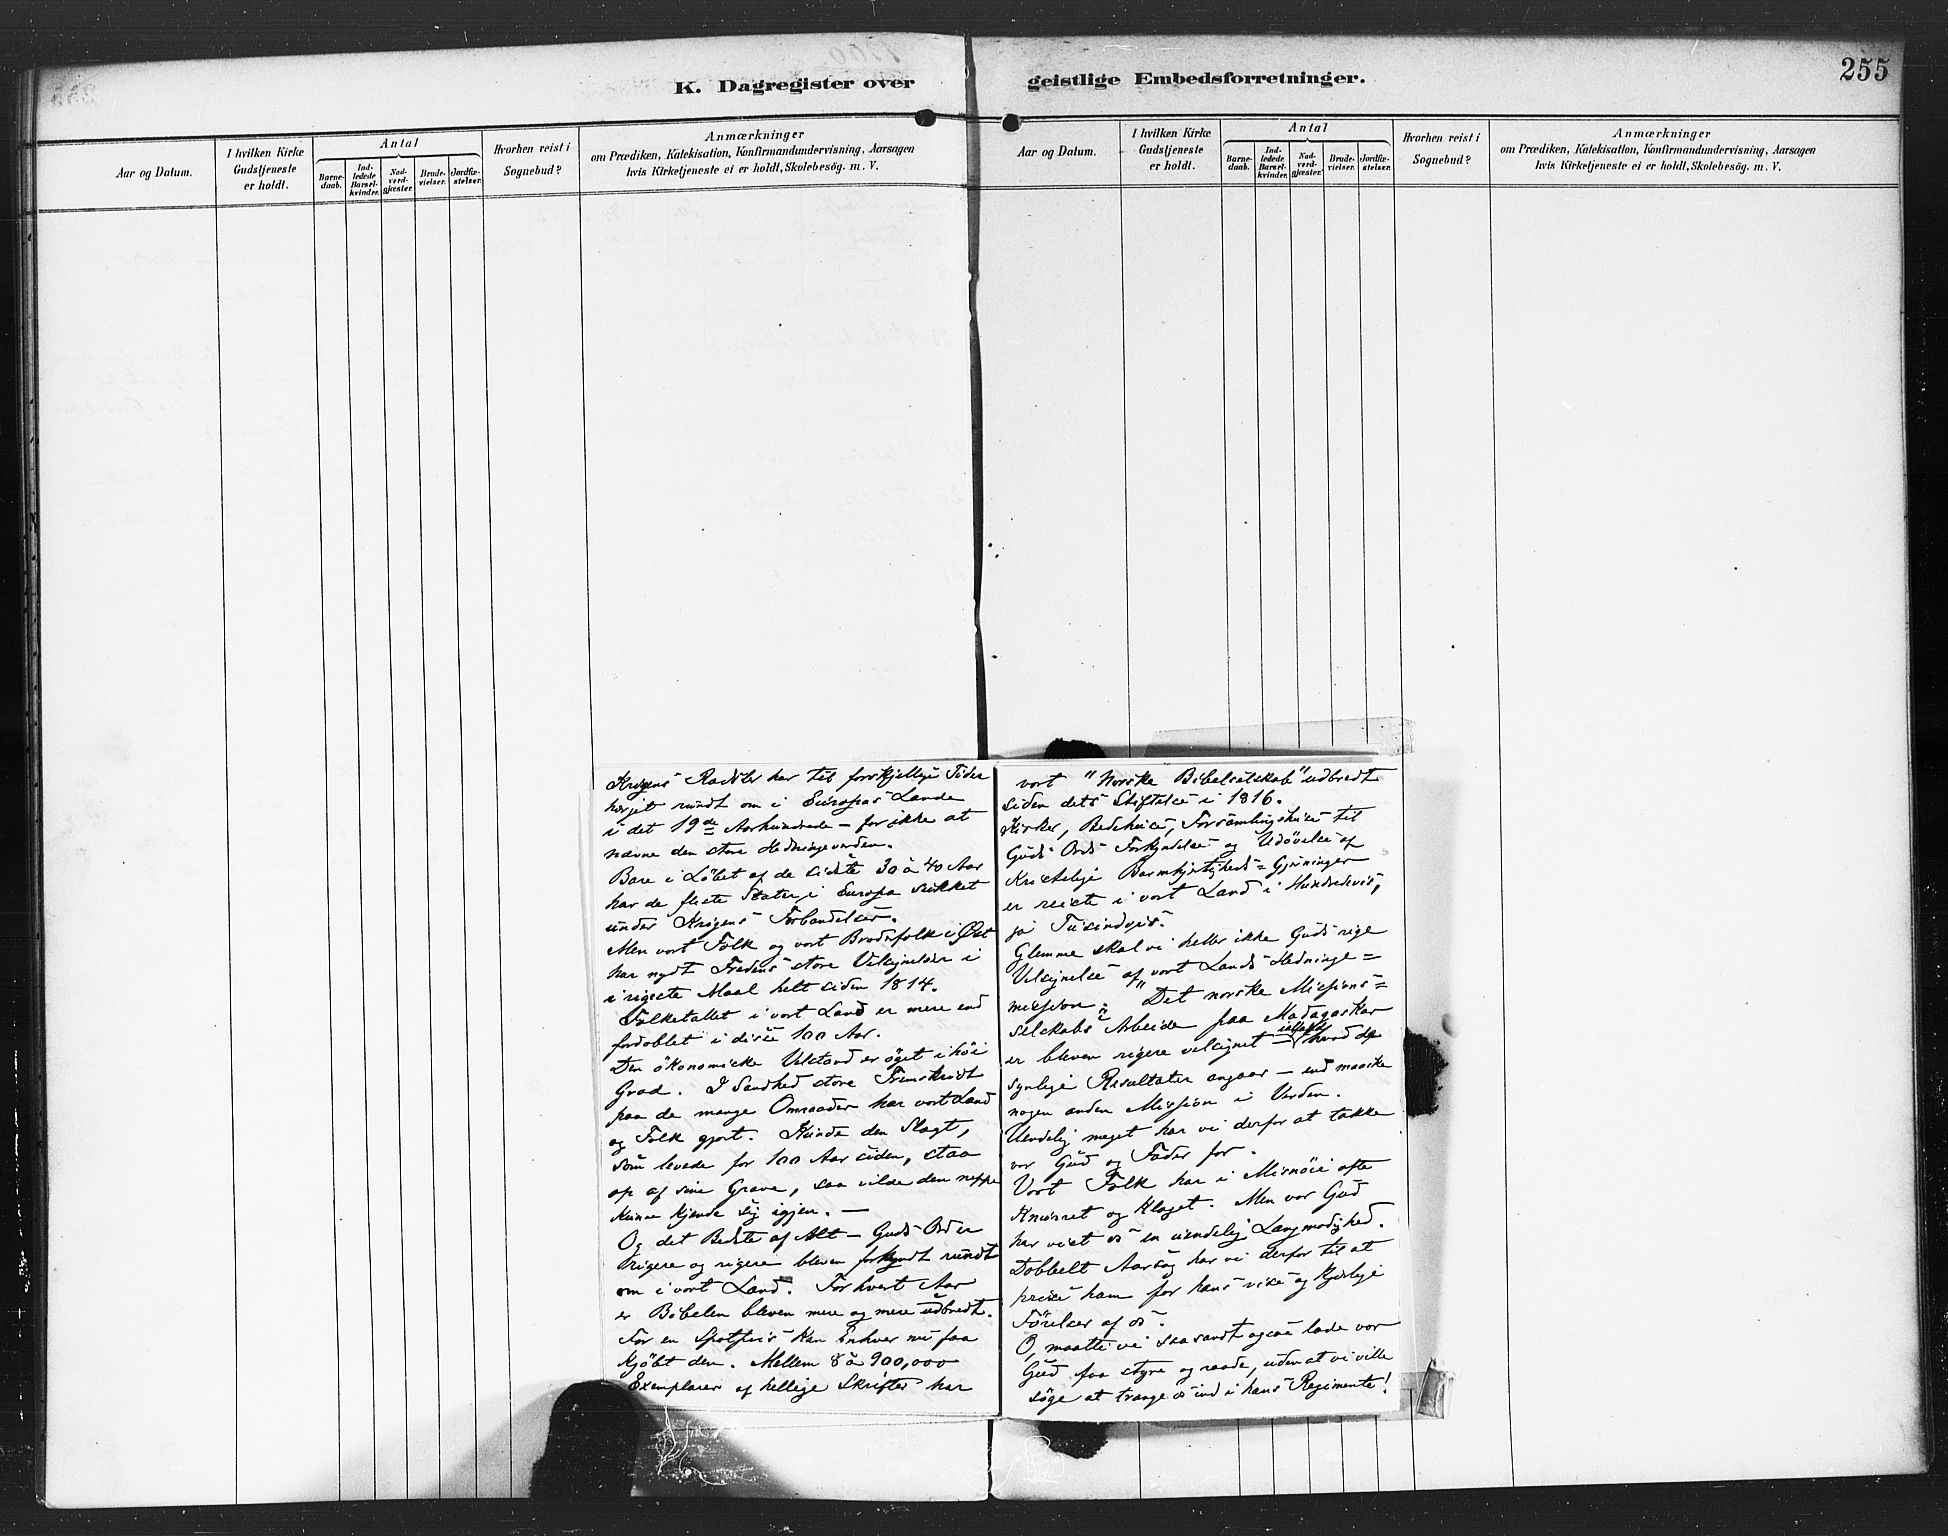 K. Dagregister over geistlige Embedsforretninger.
255
Aar og Datum.
I hvilken Kirke
Gudstjeneste
er holdt.
Antal
Barne-
daab.
Ind-
ledede
Barsel-
kvinder.
Nad-
verd-
gjæster.
Brude-
vielser.
Jordfæ-
stelser.
Hvorhen reist i
Sognebud?
Anmærkninger
om Prædiken, Katekisation, Konfirmandundervisning, Aarsagen
hvis Kirketjeneste ei er holdt, Skolebesög. m. V.
Aar og Datum.
I hvilken Kirke
Gudstjeneste
er holdt.
Antal
Barne-
daab.
Ind-
ledede
Barsel-
kvinder.
Nad-
verd-
gjæster.
Brude-
vielser.
Jordfæ-
stelser.
Hvorhen reist i
Sognebud?
Anmærkninger
om Prædiken, Katekisation, Konfirmandundervisning, Aarsagen
hvis Kirketjeneste ei er holdt, Skolebesög. m. V.
Krigens Rædsler har til forskjellige Tider
herjet rundt om i Europas Lande
i det 19de Aarhundrede – for ikke at
nævne den store Hedningeverden.
Bare i Løbet af de sidste 30 à 40 Aar
har de fleste Stater i Europa sukket
under Krigens Forbandelser.
Men vort Folk og vort Broderfolk i Øst
har nydt Fredens store Velsignelser i
i rigeste Maal helt siden 1814.
Folketallet i vort Land er mere end
fordoblet i disse 100 Aar.
Den økonomiske Velstand er øget i høi
Grad. I Sandhed store Fremskridt
paa de mange Omraader har vort Land
og Folk gjort. Kunde den Slægt,
som levede for 100 Aar siden, staa
op af sine Grave, saa vilde den neppe
kunne kjende sig igjen. –
Og det Bedste af Alt – Guds Ord er
rigere og rigere bleven forkyndt rundt
om i vort Land. For hvert Aar
er Bibelen bleven mere og mere udbredt.
For en Spotpris kan Enhver nu faa
kjøbt den. Mellem 8 à 900,000
Exemplarer af hellige Skrifter har
vort "Norske Bibelselskab" udbredt
siden dets Stiftelse i 1816.
Kirker, Bedehuse, Forsamlingshuse til
Guds Ords Forkyndelse og Udøvelse af
Kristelige Barmhjertigheds= Gjerninger
er reiste i vort Land i Hundredevis,
ja Tusindvis.
Glemme skal vi heller ikke Guds rige
Velsignelse af vort Lands Hedninge=
mission: "Det norske Missions=
selskabs" Arbeide paa Madagaskar
er bleven rigere velsignet – ialfald hvad de
synlige Resultater angaar – end maaske
nogen anden Mission i Verden.
Uendelig meget har vi derfor at takke
vor Gud og Fader for.
Vort Folk har i Misnøie ofte
Knurret og Klaget. Men vor Gud
har vist os en uendelig Langmodighed.
Dobbelt Aarsag har vi derfor til at
prise ham for hans vise og kjærlige
Førelser af os.
O, maatte vi saasandt ogsaa lade vor
Gud faa styre og raade, uden at vi ville
søge at trænge os ind i hans Regimente!